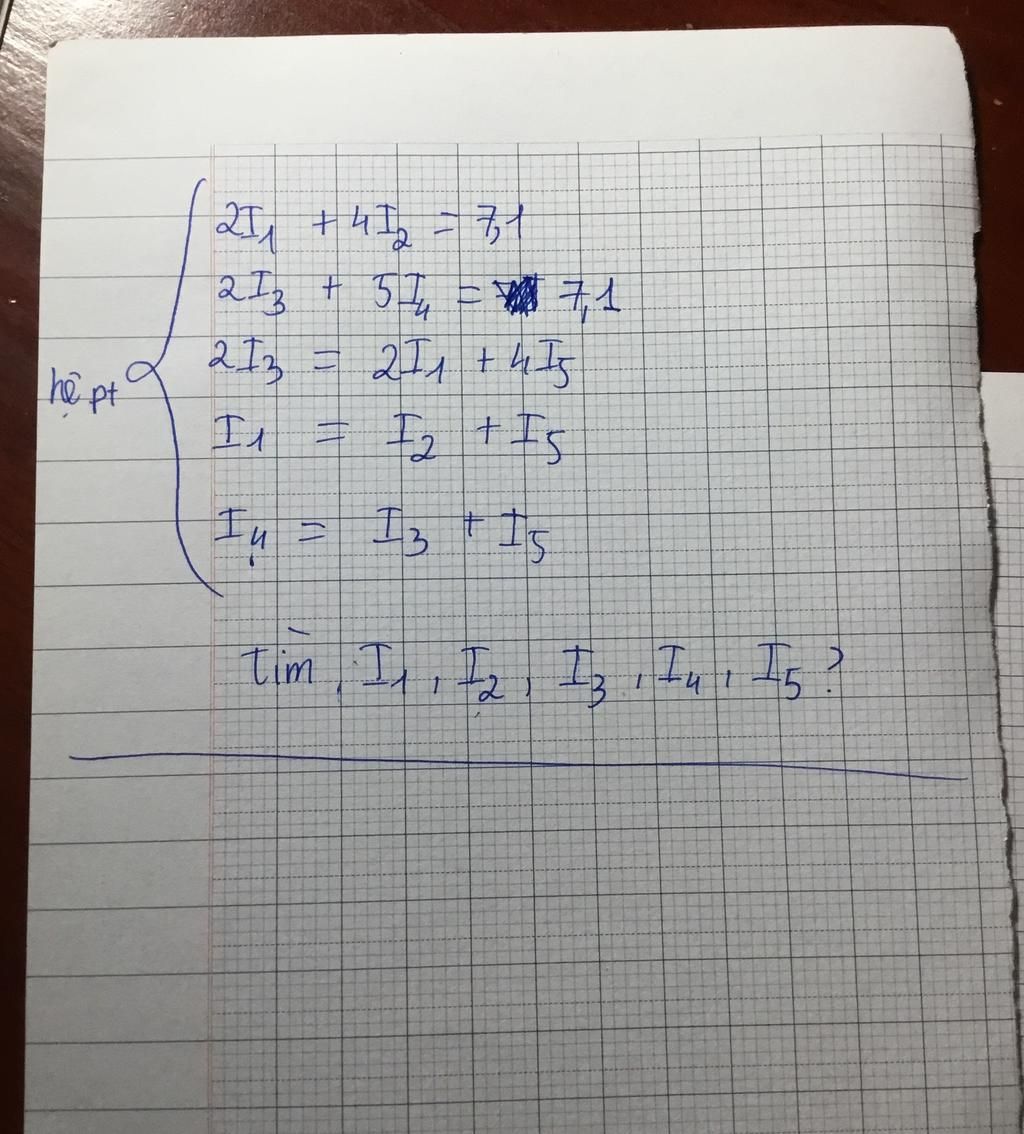 2I₁ + 4I₂ = 7,1
2I₃ + 5I₄ = 7,1
2I₃ = 2I₁ + 4I₅
hệ pt
I₁ = I₂ + I₅
I₄ = I₃ + I₅
Tìm, I₁, I₂, I₃, I₄, I₅?